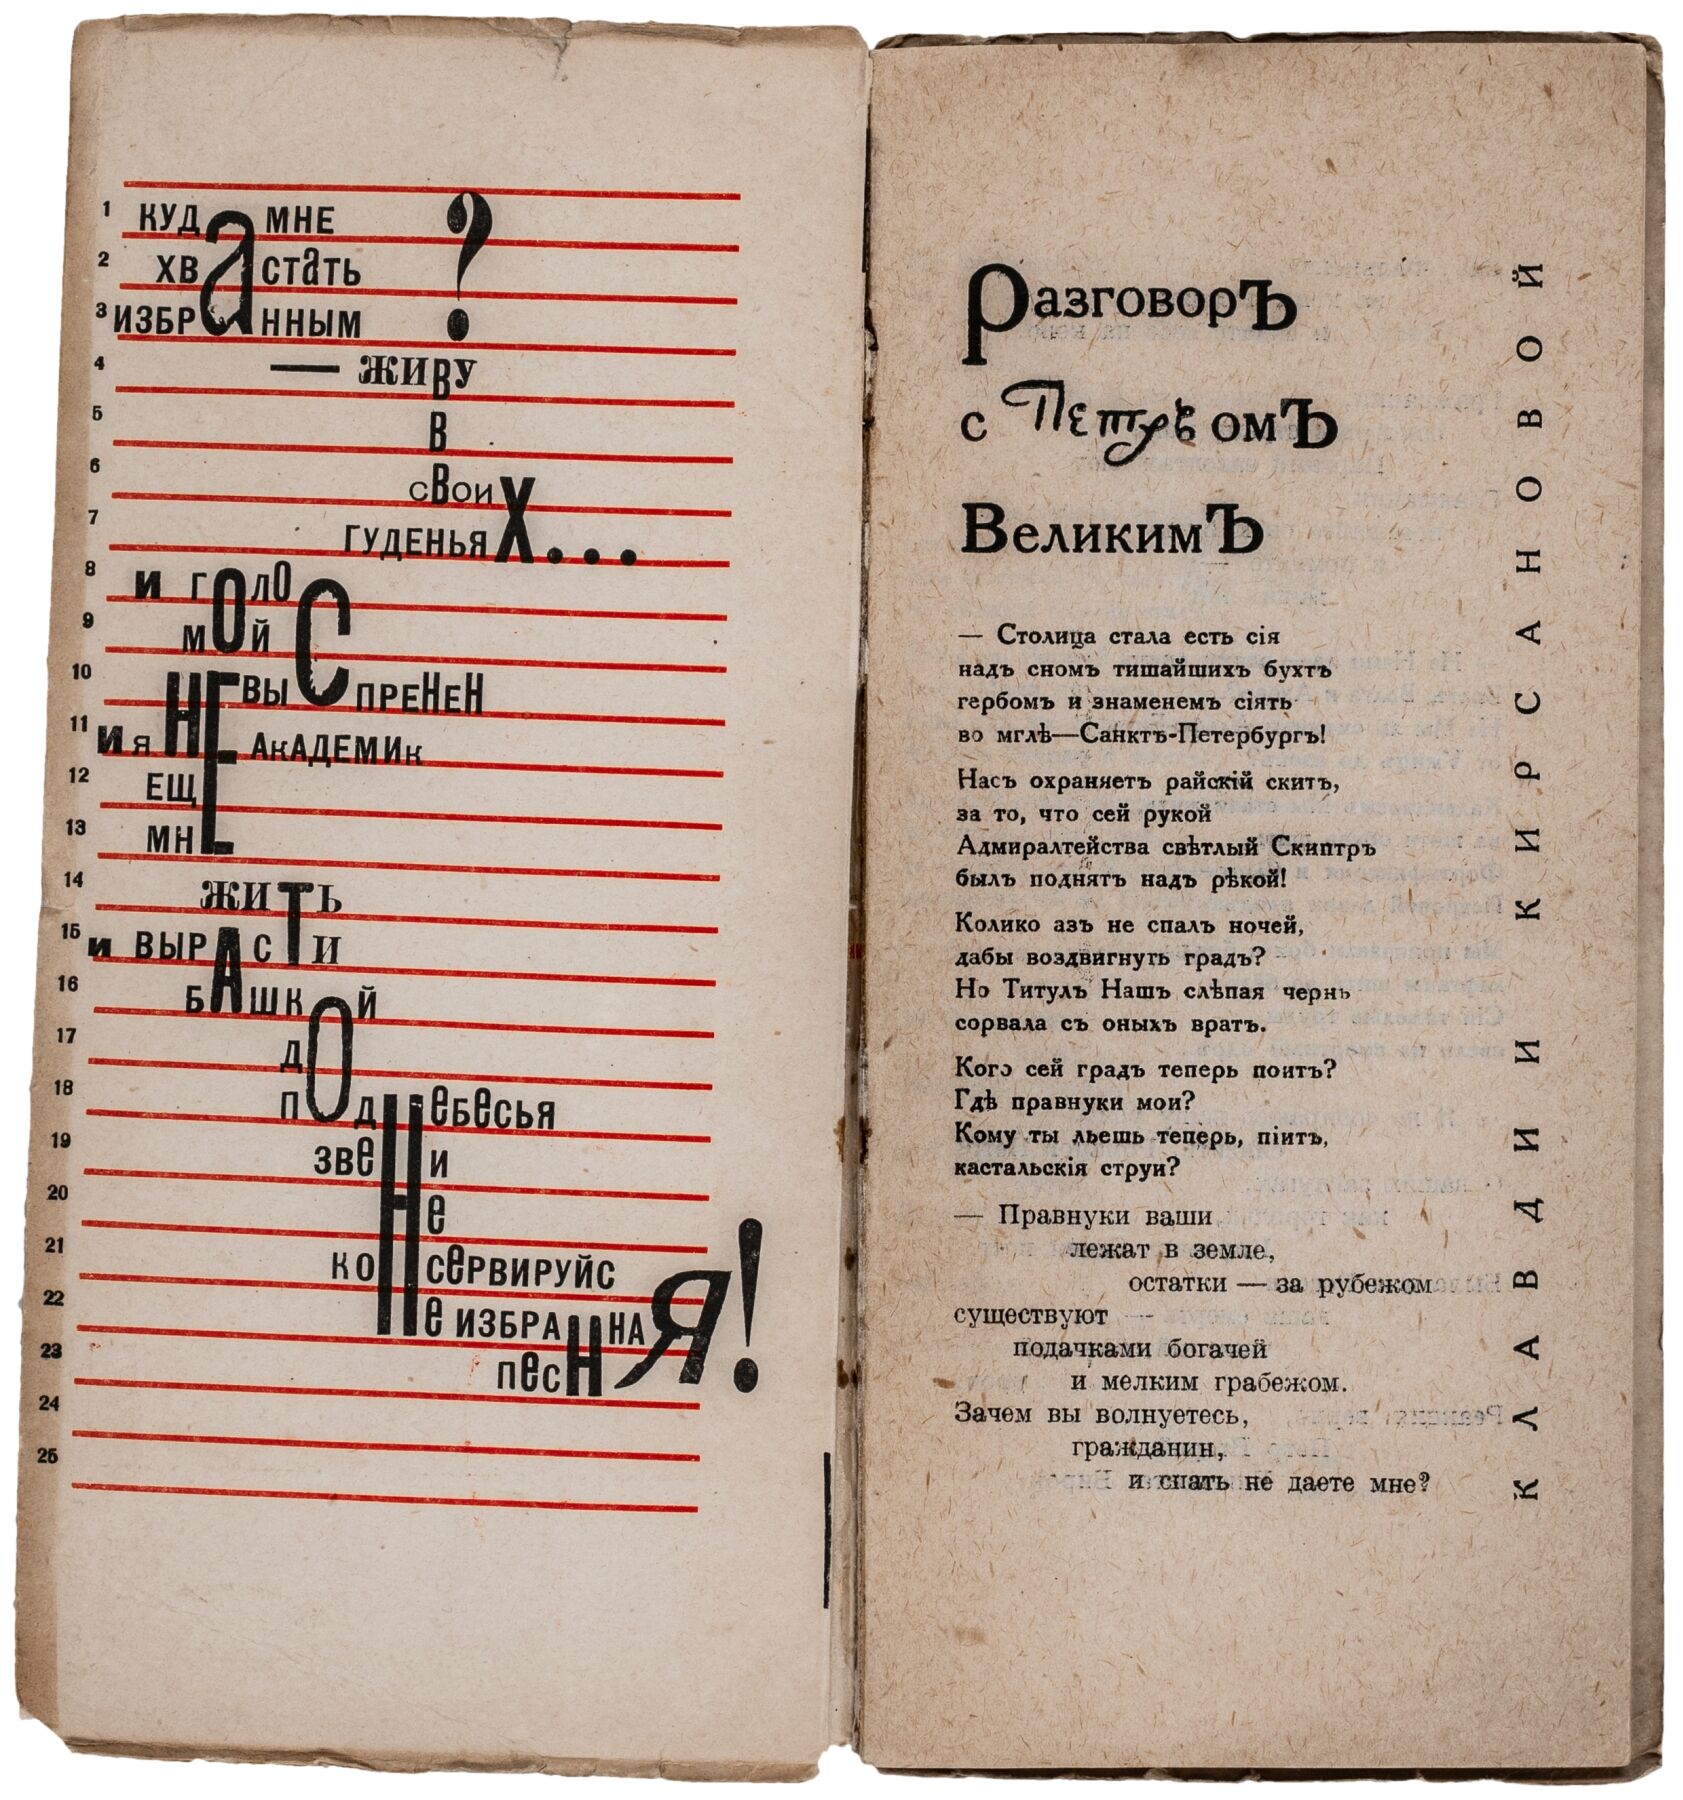 1 КУДа МНЕ ?
2 ХВаСТаТЬ
3 ИЗБРаННЫМ
4 — ЖИВУ
5 В
6 СВОИХ
7 ГУДЕНЬЯХ...
8 И ГОЛОС
9 МОЙ
10 НЕВЫСПРЕНЕН
11 И Я НЕ АКАДЕМИК
12 ЕЩЕ
13 МНЕ
14 ЖИТЬ
15 И ВЫРАСТИ
16 БАШКОЙ
17 ДО
18 ПОДНЕБЕСЬЯ
19 ЗВЕНИ
20 НЕ
21 КОНСЕРВИРУЙСЯ!
22 НЕИЗБРАННАЯ
23 ПЕСНЯ
24
25
РазговорЪ
с ПетрѣомЪ
ВеликимЪ
— Столица стала есть сія
надъ сномъ тишайшихъ бухтъ
гербомъ и знаменемъ сіять
во мглѣ—Санктъ-Петербургъ!
Насъ охраняетъ райскій скитъ,
за то, что сей рукой
Адмиралтейства свѣтлый Скиптръ
былъ поднятъ надъ рѣкой!
Колико азъ не спалъ ночей,
дабы воздвигнуть градъ?
Но Титулъ Нашъ слѣпая чернь
сорвала съ оныхъ вратъ.
Кого сей градъ теперь поитъ?
Гдѣ правнуки мои?
Кому ты льешь теперь, піитъ,
кастальскія струи?
— Правнуки ваши
лежат в земле,
остатки — за рубежом
существуют —
подачками богачей
и мелким грабежом.
Зачем вы волнуетесь,
гражданин,
и спать не даете мне?
КЛАВДИИ КИРСАНОВОЙ